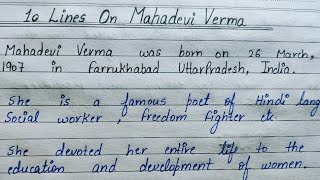 10 Lines On Mahadevi Verma
Mahadevi Verma was born on 26 March,
1907 in Farrukhabad UttarPradesh, India.
She is a famous poet of Hindi Lang
Social worker, freedom fighter etc.
She devoted her entire life to the
education and development of women.